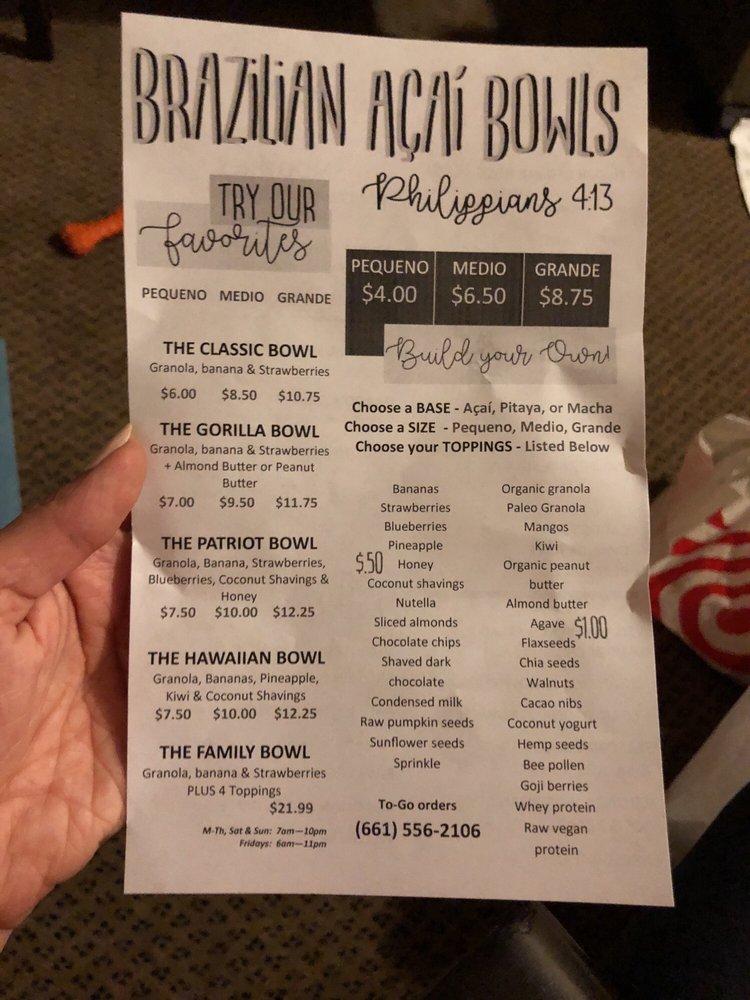 BRAZILIAN AÇAÍ BOWLS
TRY OUR
favorites
PEQUENO MEDIO GRANDE
THE CLASSIC BOWL
Granola, banana & Strawberries
$6.00 $8.50 $10.75
THE GORILLA BOWL
Granola, banana & Strawberries
+ Almond Butter or Peanut
Butter
$7.00 $9.50 $11.75
THE PATRIOT BOWL
Granola, Banana, Strawberries,
Blueberries, Coconut Shavings &
Honey
$7.50 $10.00 $12.25
THE HAWAIIAN BOWL
Granola, Bananas, Pineapple,
Kiwi & Coconut Shavings
$7.50 $10.00 $12.25
THE FAMILY BOWL
Granola, banana & Strawberries
PLUS 4 Toppings
$21.99
M-Th, Sat & Sun: 7am—10pm
Fridays: 6am—11pm
Philippians 4:13
PEQUENO MEDIO GRANDE
$4.00 $6.50 $8.75
Build your Own!
Choose a BASE - Açaí, Pitaya, or Macha
Choose a SIZE - Pequeno, Medio, Grande
Choose your TOPPINGS - Listed Below
Bananas
Strawberries
Blueberries
Pineapple
$.50 Honey
Coconut shavings
Nutella
Sliced almonds
Chocolate chips
Shaved dark
chocolate
Condensed milk
Raw pumpkin seeds
Sunflower seeds
Sprinkle
To-Go orders
(661) 556-2106
Organic granola
Paleo Granola
Mangos
Kiwi
Organic peanut
butter
Almond butter
Agave $1.00
Flaxseeds
Chia seeds
Walnuts
Cacao nibs
Coconut yogurt
Hemp seeds
Bee pollen
Goji berries
Whey protein
Raw vegan
protein